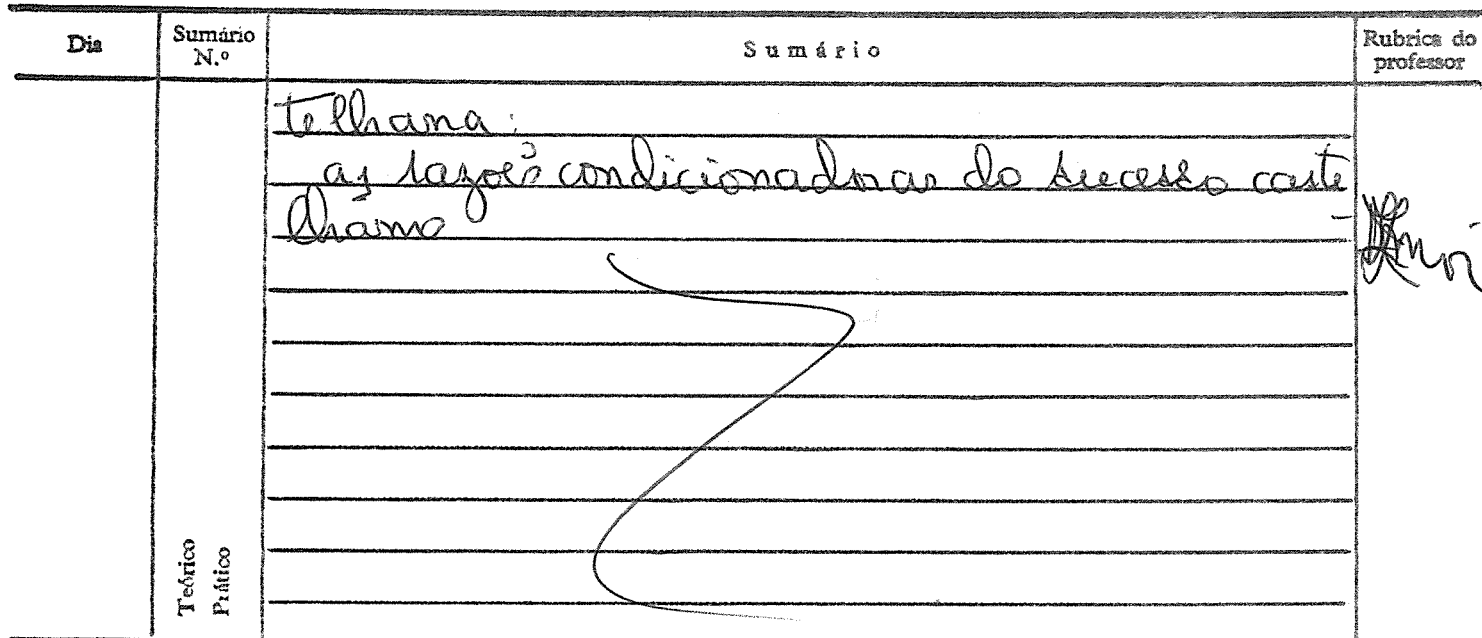 Dia
Sumário N.º
Sumário
Rubrica do professor
telhana:
as razões condicionadoras do sucesso caste
lhano
Teórico
Prático